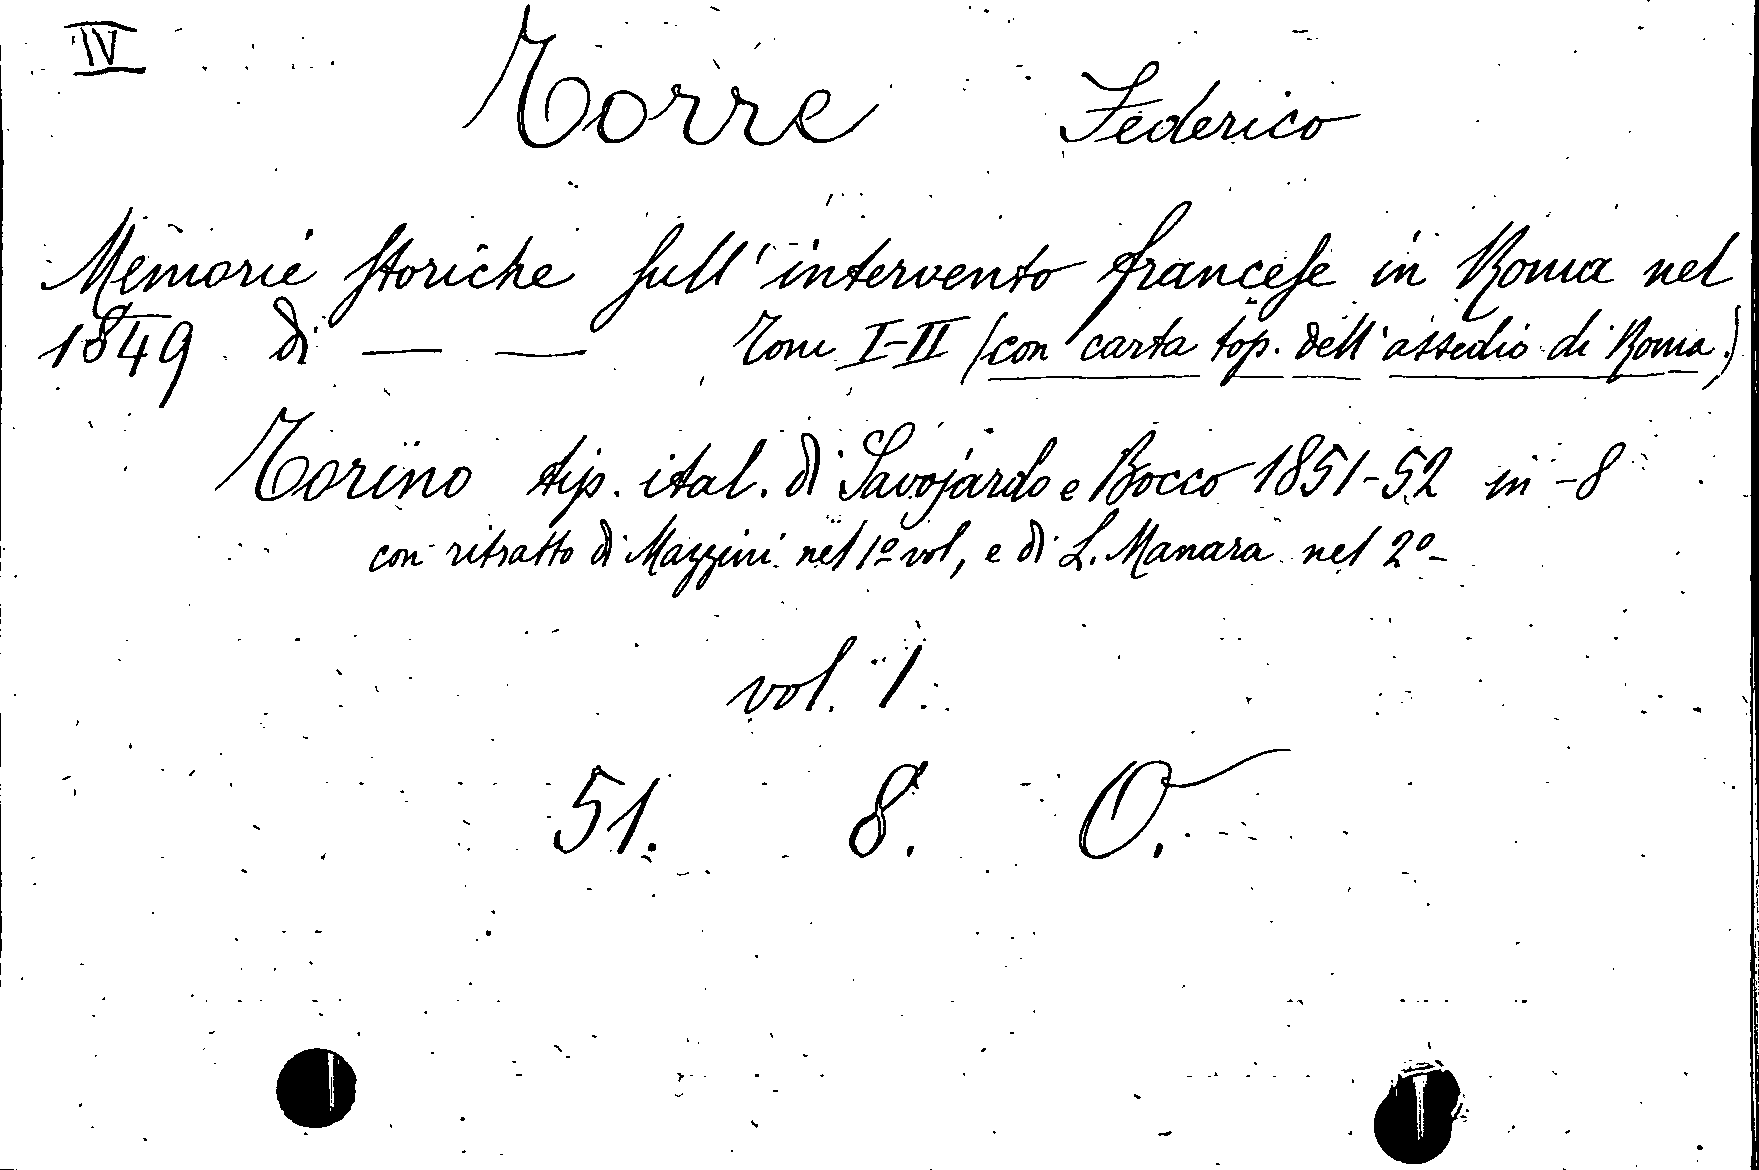 IV
Torre Federico
Memorie storiche sull'intervento francese in Roma nel
1849 di — — Tomi I-II (con carta top. dell'assedio di Roma.)
Torino tip. ital. di Savojardo e Bocco 1851-52 in -8
con ritratto di Mazzini nel 1º vol, e di L. Manara nel 2º-
vol. 1.
51. 8. O.